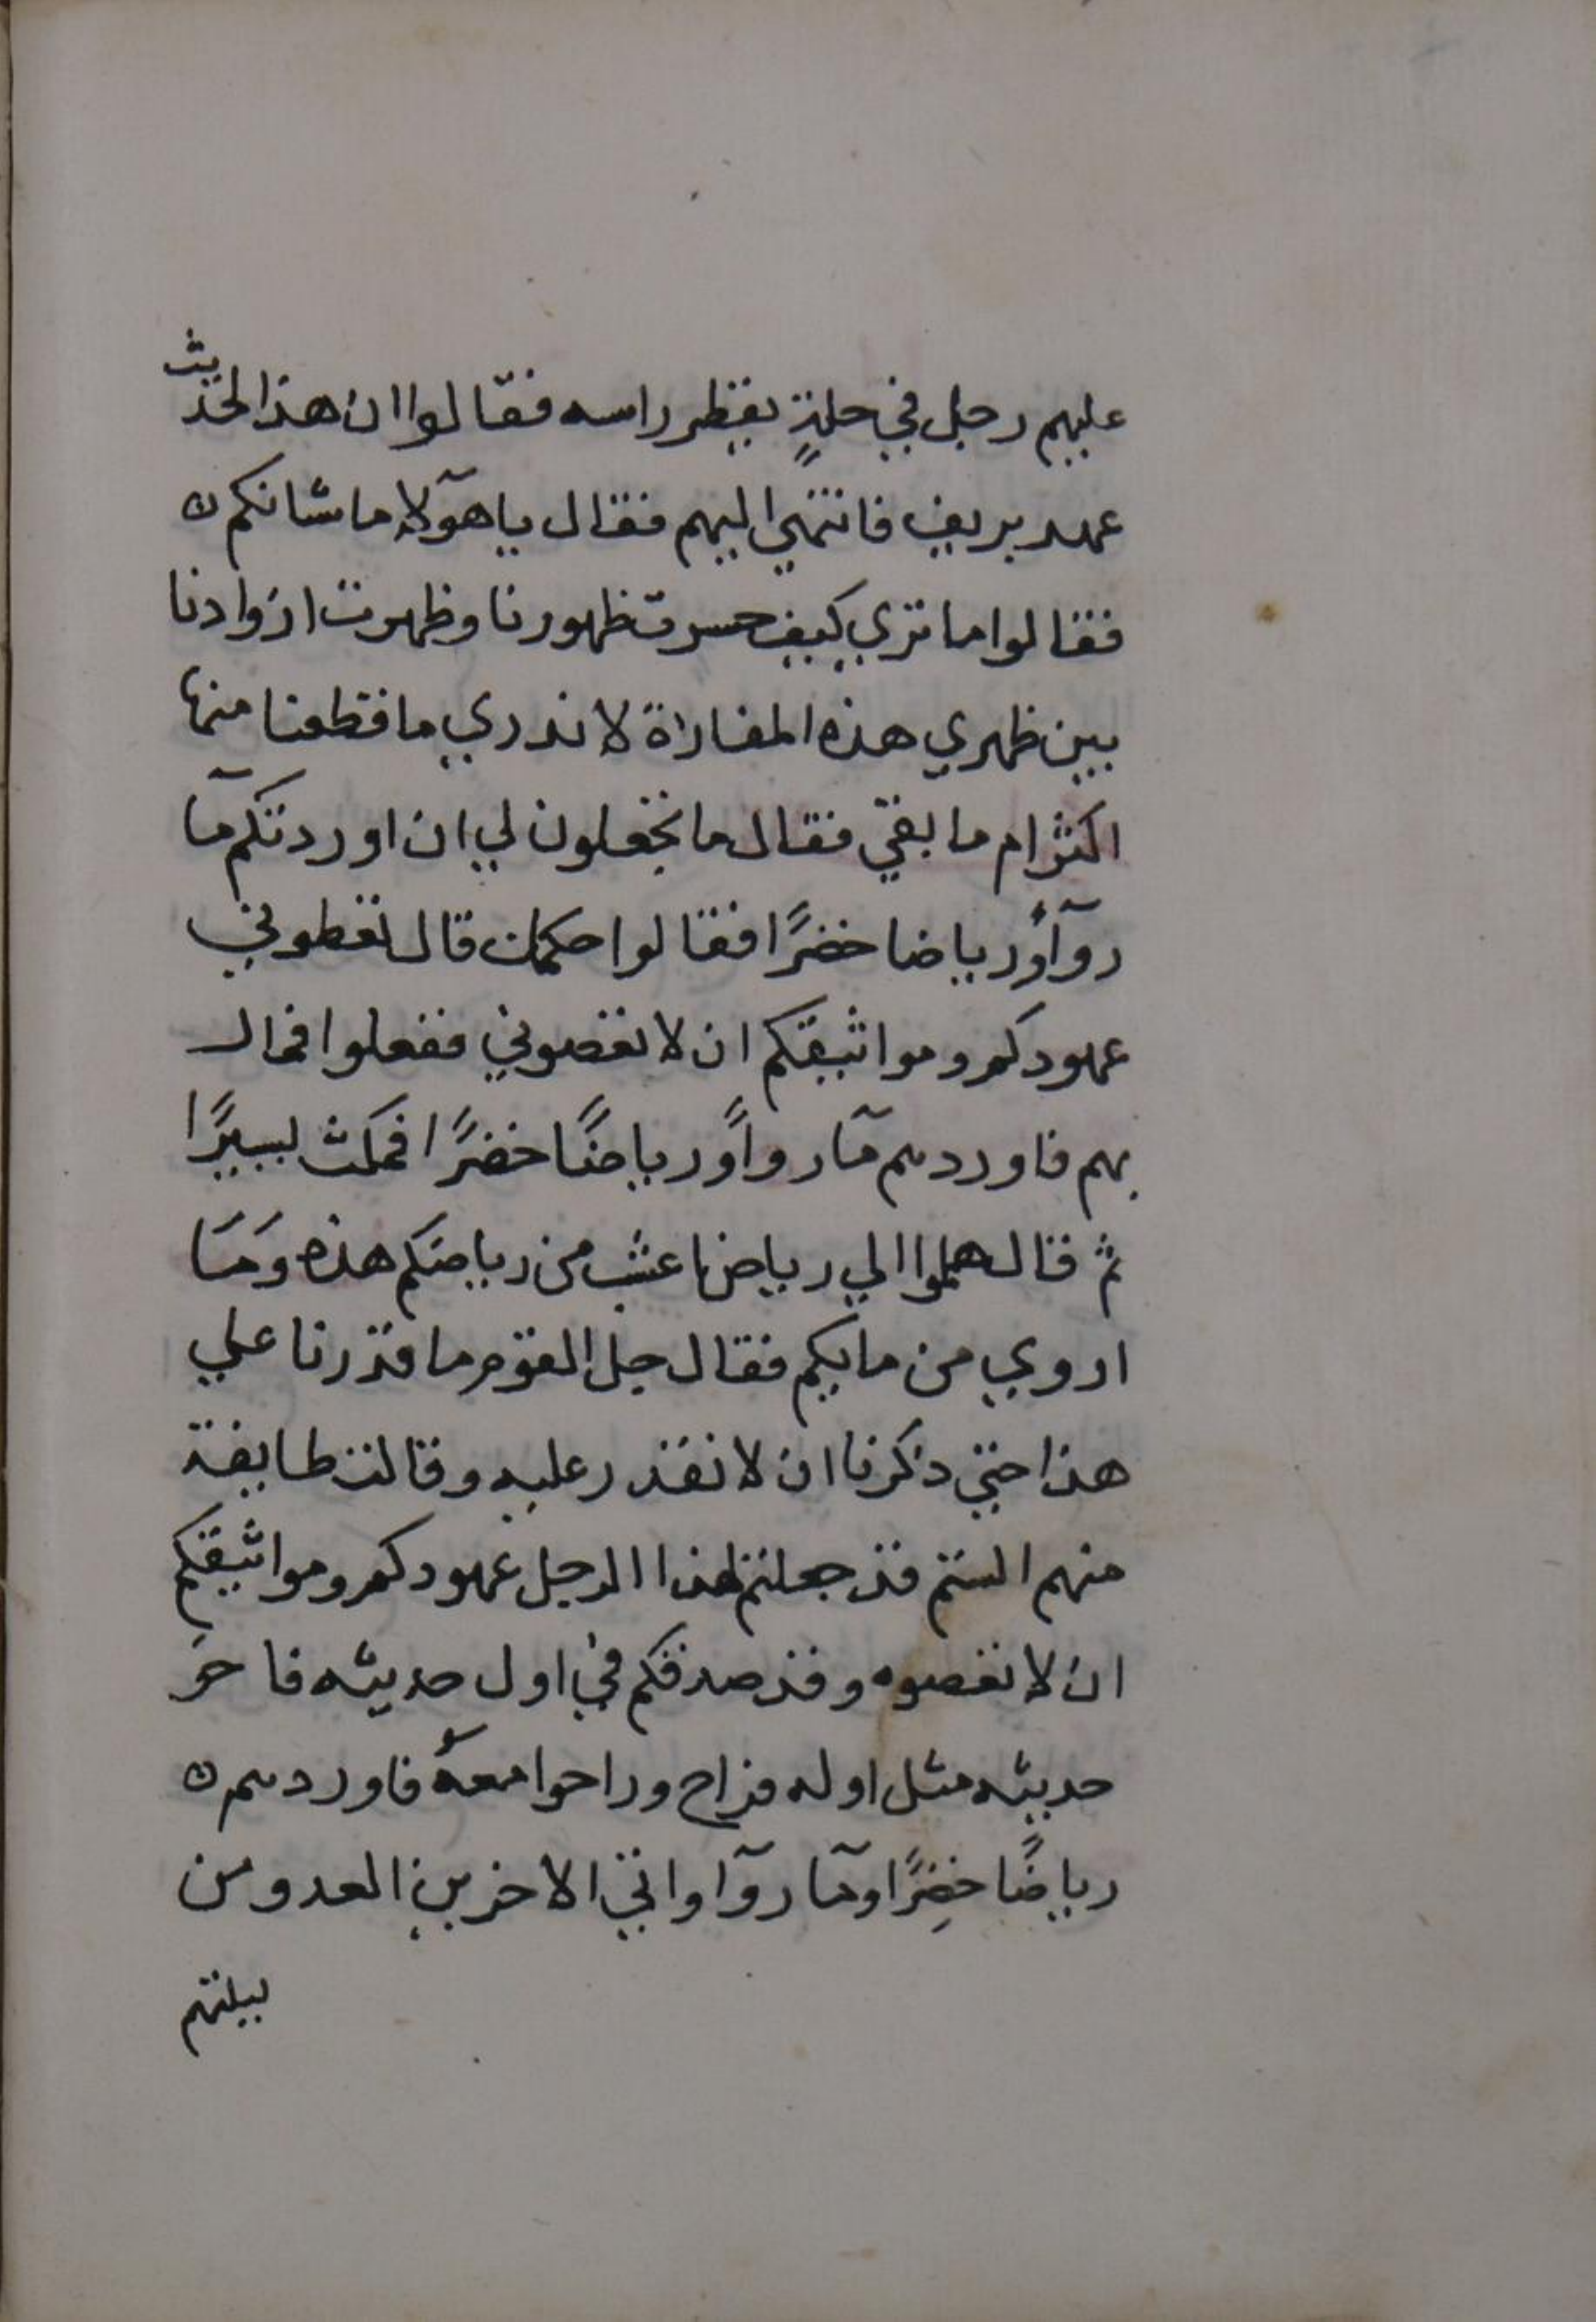 عليهم رجل في حلةٍ يقطر راسه فقالوا ان هذا لحديث
عهد بريف فانتهي اليهم فقال يا هؤلا ما شانكم
فقالوا ما تري كيف حسرت ظهورنا وظهرت ازوادنا
بين ظهري هذه المفازاة لا ندري ما قطعنا منها
اكثر ام ما بقي فقال ما تجعلون لي ان اوردتكم مآ
روآاً ورياضا خضرًا فقالوا حكمك قال تعطوني
عهودكم ومواثيقكم ان لا تعصوني ففعلوا فمال
بهم فاوردهم مآ رواًا ورياضًا خضرًا فمكث يسيرًا
ثم قال هلموا الي رياض اعشب من رياضكم هذه ومَا
اروي من مايكم فقال جل القوم ما قدرنا علي
هذا حتي ذكرنا ان لا نقدر عليه وقالت طايفة
منهم الستم قد جعلتم لهذا الرجل عهودكم ومواثيقكم
ان لا تعصوه وقد صدقكم في اول حديثه فاخر
حديثه مثل اوله فراح وراحوا معه فاوردهم
رياضًا خضِرًا ومآ روآا واتي الاخرين العدو من
ليلتهم